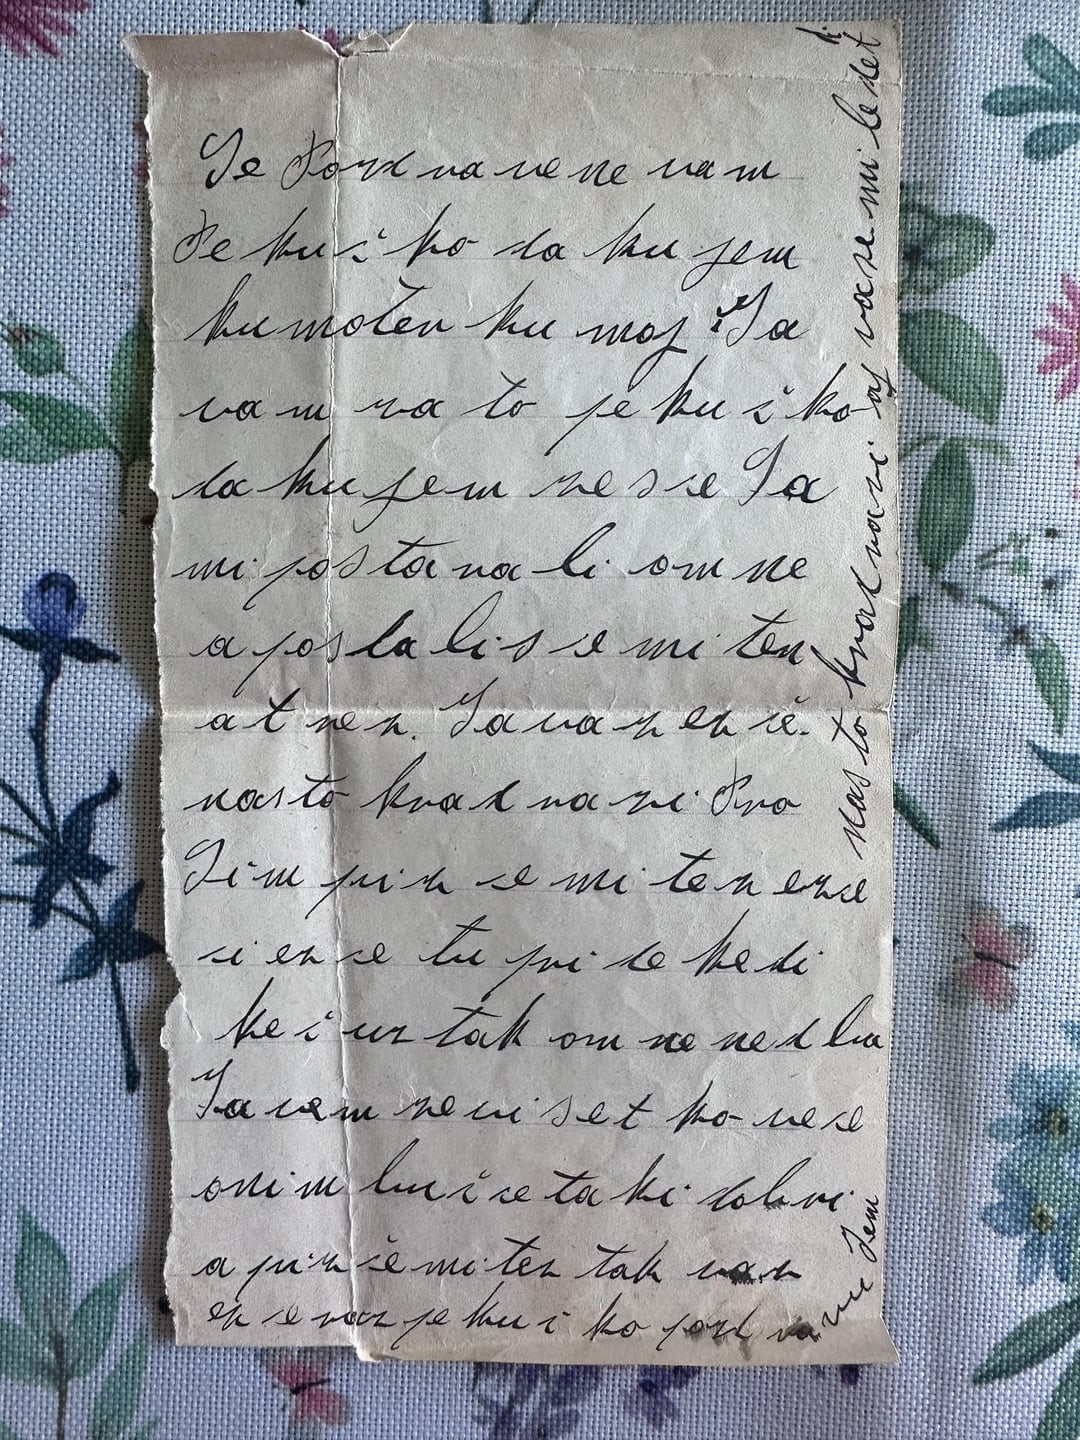 Se Pozd ra ve ne vam
Pe ku č ko da ku jem
ku moter ku moj Ja
vam za to pe ku č ko
da ku jem ze s se Ja
mi pos ta ra li om ne
a pos la li s se mi ten
a t nen. Ja va z en še.
ras to krad ra zi Pro
Sim piz se mi te z en se
si en se tu pri de ke di
ke č uz tak om ne ne d ba
Ja vem ze vi s e t ko ve se
onim bu č se ta ki dob ri
a piz še mi ten tak vaz
en se raz pe ku č ko pozd ra vu jem
ras to krad ra zi aj va se mi le det
ki